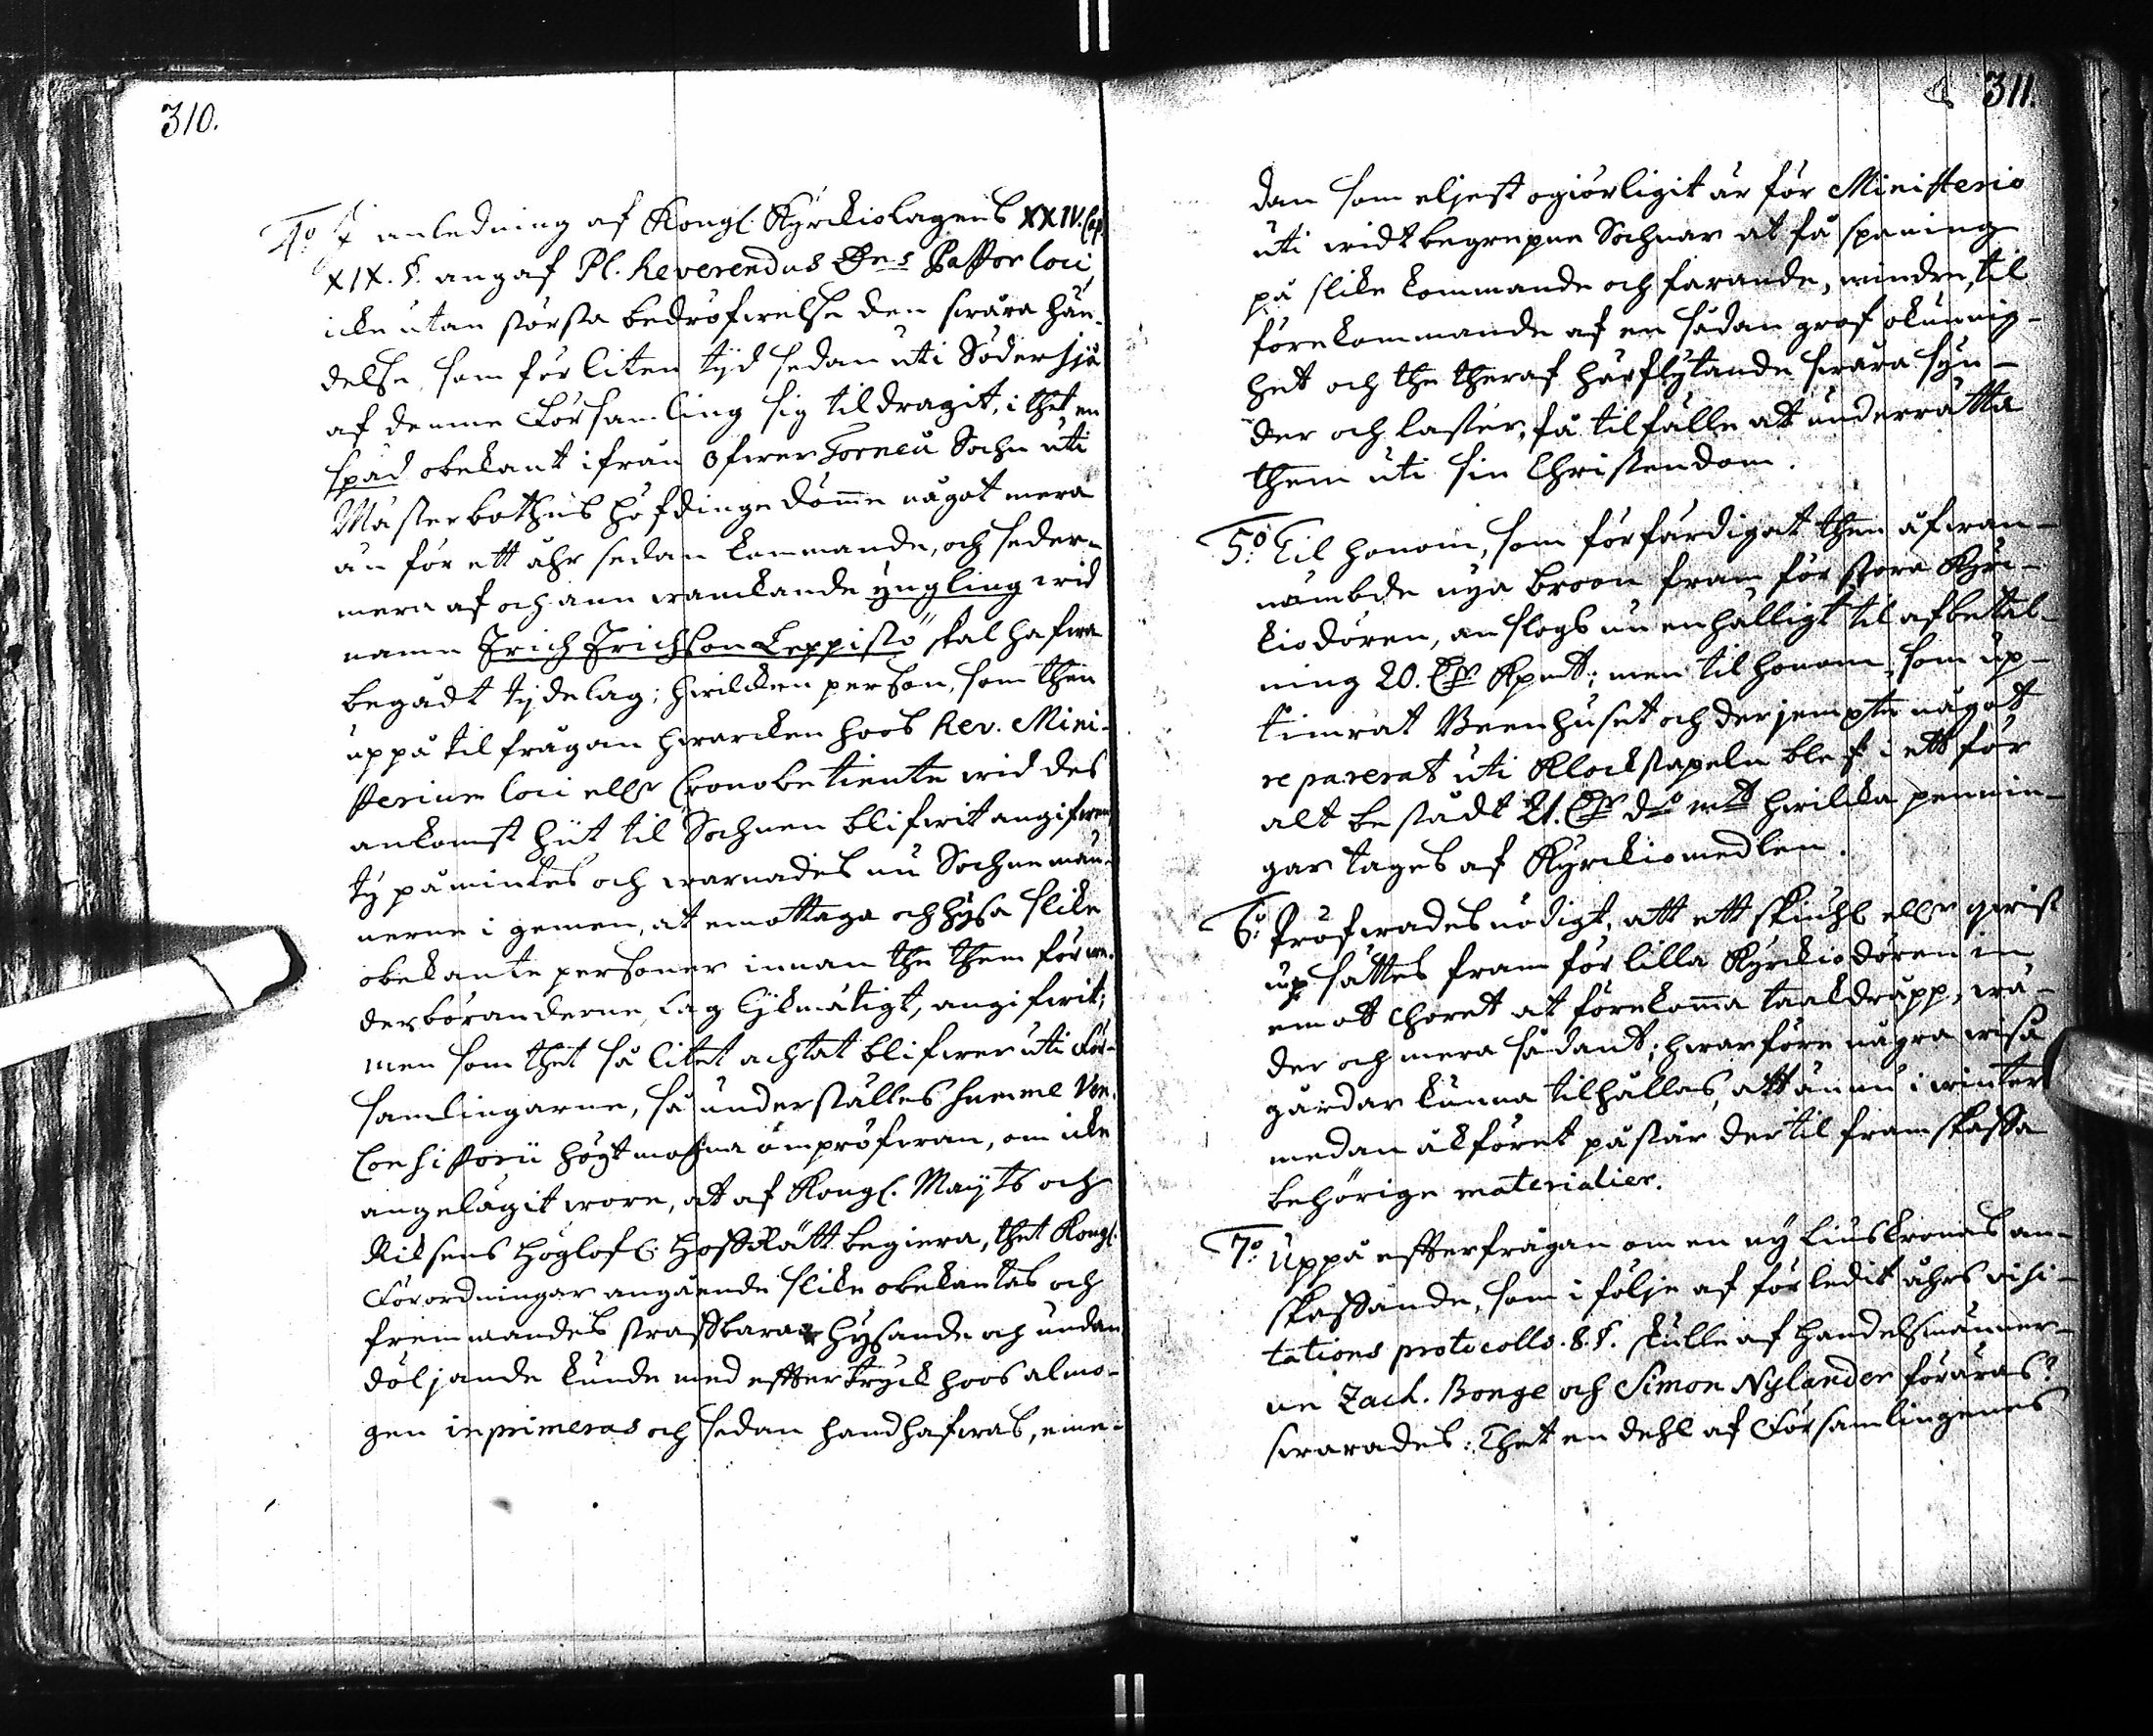 310.
4:o I anledning af Kongl. Kyrckiolagens XXIV. Cap.
XIX. §. angaf Pl. Reverendus Dns Pastor loci,
icke utan största bedröfwelse den swåra hän-
delse, som för liten tijd sedan uti Södersjö
af denne Församling sig tildragit, i thet en
spad obekant ifrån Öfwer Torneå Sochn uti
Wästerbothns höfdingedöme något mera
än för ett åhr sedan kommande, och seder-
mera af och ann wanckande yngling wid
namn Erich Erichson Leppistö skal hafwa
begådt tijdelag; hwilcken person, som then
uppå tilfrågan hwarcken hoos Rev. Mini-
sterium loci eller Cronobetiente wid des
ankomst hijt til Sochnen blifwit angifwen,
ty påmintes och warnades nu Sochnemän-
nerne i gemen, at emottaga och hysa slike
obekante personer innan the them för we-
derböranderne, lag lijkmätigt, angifwit;
men som thet så litet achtat blifwer uti För-
samlingarne, så understältes summe Ven.
Consistorii högtmogna ompröfwan, om icke
angelägit wore, at af Kongl. Maijts och
Riksens Höglofl. HoffRätt begiera, thet Kongl.
Förordningar angående slike obekantas och
fremmandes straffbara hysande och undan
döljande kunde med effter tryck hoos almo-
gen inprimeras och sedan handhafwas, eme-
311.
dan som eljest ogiörligit är för Ministerio
uti widt begrepne Sochnar at få spaning
på slike kommande och farande, mindre, til
förekommande af en sådan grof okunnig-
het och the theraf härflytande swåra syn-
der och laster, få tilfälle att underrätta
them uti sin Christendom.
5:o Til honom, som förfärdigat then åfwan-
nämbde nya broon fram för stora Kyrc-
kiodören, anslogs nu enhälligt til afbetal-
ning 20. Dlr Kpmt; men til honom, som up-
timrat Beenhuset och derjempte något
reparerat uti Klockstapeln blef i ett för
alt bestådt 21. Dlr do mtt hwilcka pennin-
gar tages af Kyrckiomedlen.
6:o Pröfwades nödigt, att ett skiuhl eller qwist
upsättes fram för lilla Kyrckiodören in
emot Choret at förekomma taakdråpp, wä-
der och mera sådant; hwarföre några wisa
gårdar kunna tilhållas, att ännu i winter
medan åkföret påstår dertil framskaffa
behörige materialier.
7:o Uppå effterfrågan om en ny liuskronas an-
skaffande, som i följe af förledit åhrs visi-
tations protocolls. 8. §. skulle af Handelsmänner-
ne Zach. Bonge och Simon Nylander föräras?
swarades: Thet en dehl af Församlingenes